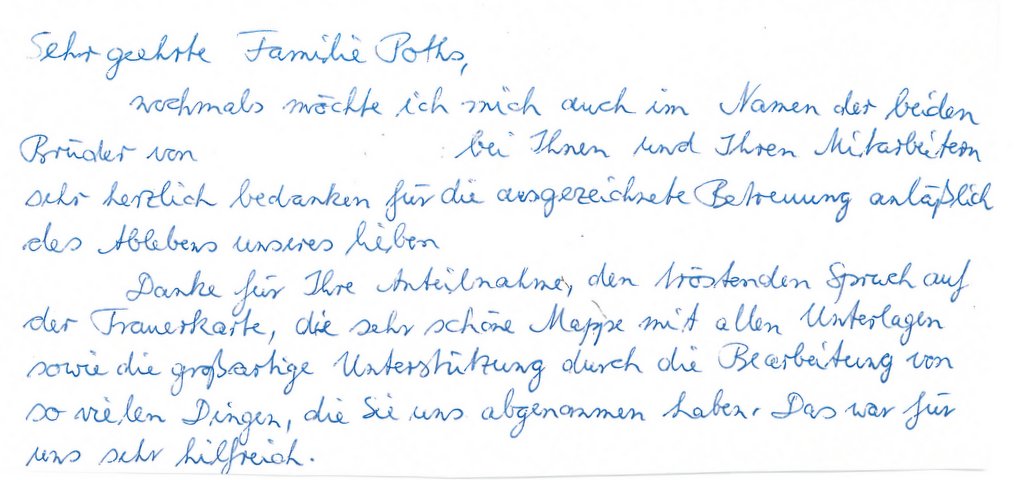 Sehr geehrte Familie Poths,
nochmals möchte ich mich auch im Namen der beiden
Brüder von bei Ihnen und Ihren Mitarbeitern
sehr herzlich bedanken für die ausgezeichnete Betreuung anläßlich
des Ablebens unseres lieben
Danke für Ihre Anteilnahme, den tröstenden Spruch auf
der Trauerkarte, die sehr schöne Mappe mit allen Unterlagen
sowie die großartige Unterstützung durch die Bearbeitung von
so vielen Dingen, die Sie uns abgenommen haben. Das war für
uns sehr hilfreich.